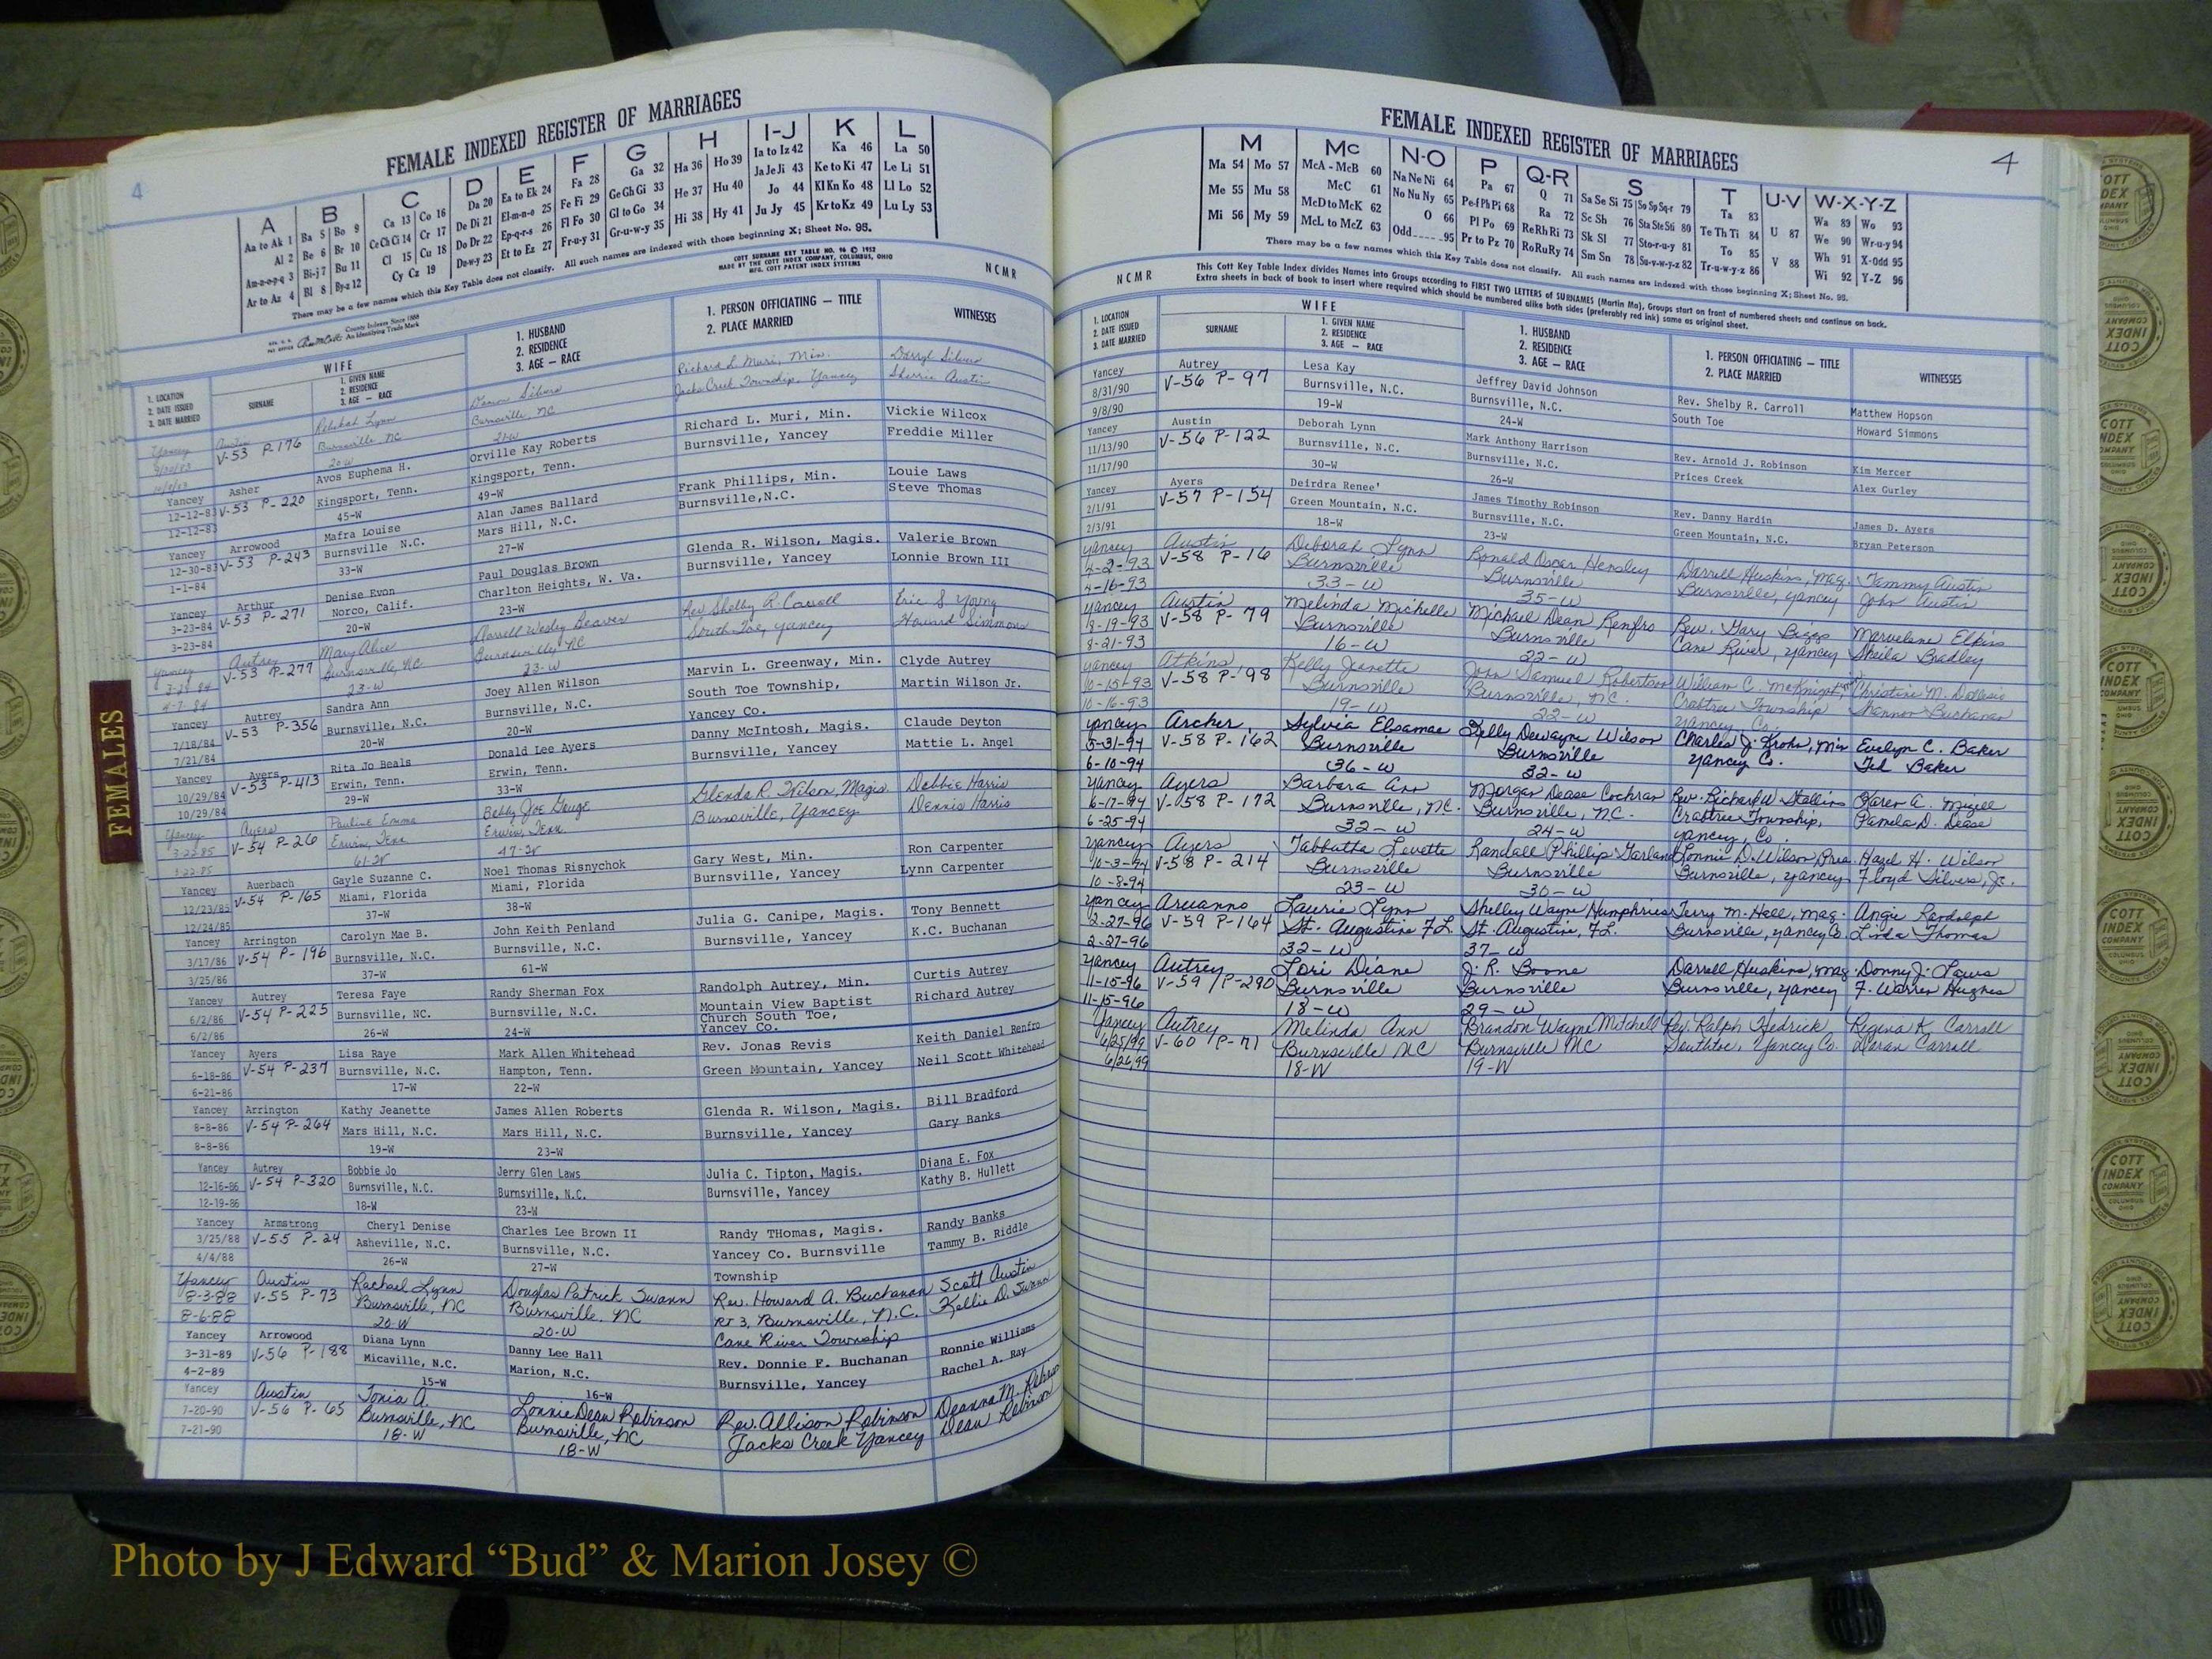 4
FEMALE INDEXED REGISTER OF MARRIAGES
A
Aa to Ak 1
Al 2
Am-n-o-p-q 3
Ar to Az 4
B
Ba 5
Be 6
Bi-j 7
Bl 8
Bo 9
Br 10
Bu 11
By-z 12
C
Ca 13
Ce Ch Ci 14
Cl 15
Cy Cz 19
Co 16
Cr 17
Cu 18
D
Da 20
De Di 21
Do Dr 22
Du-w-y 23
E
Ea to Ek 24
El-m-n-o 25
Ep-q-r-s 26
Et to Ez 27
F
Fa 28
Fe Fi 29
Fl Fo 30
Fr-u-y 31
G
Ga 32
Ge Gh Gi 33
Gl to Go 34
Gr-u-w-y 35
H
Ha 36
He 37
Hi 38
Ho 39
Hu 40
Hy 41
I-J
Ia to Iz 42
Ja Je Ji 43
Jo 44
Ju Jy 45
K
Ka 46
Ke to Ki 47
Kl Kn Ko 48
Kr to Kz 49
L
La 50
Le Li 51
Ll Lo 52
Lu Ly 53
There may be a few names which this Key Table does not classify. All such names are indexed with those beginning X; Sheet No. 95.
COTT SURNAME KEY TABLE NO. 96 © 1952
MADE BY THE COTT INDEX COMPANY, COLUMBUS, OHIO
MFG. COTT PATENT INDEX SYSTEMS
NCMR
County Indexes Since 1888
An Identifying Trade Mark
1. LOCATION
2. DATE ISSUED
3. DATE MARRIED
WIFE
SURNAME
1. GIVEN NAME
2. RESIDENCE
3. AGE — RACE
1. HUSBAND
2. RESIDENCE
3. AGE — RACE
1. PERSON OFFICIATING — TITLE
2. PLACE MARRIED
WITNESSES
Yancey Austin Rebekah Lynn Silvers Richard L. Muri, Min. Darryl Silvers
V-53 P-176 Burnsville, NC Burnsville, NC Jacks Creek Township, Yancey Sherrie Austin
20-W 21-W
Yancey Asher Avos Euphema H. Orville Kay Roberts Richard L. Muri, Min. Vickie Wilcox
12-12-83 V-53 P-220 Kingsport, Tenn. Kingsport, Tenn. Burnsville, Yancey Freddie Miller
12-12-83 45-W 49-W
Yancey Arrowood Mafra Louise Alan James Ballard Frank Phillips, Min. Louie Laws
12-30-83 V-53 P-243 Burnsville N.C. Mars Hill, N.C. Burnsville,N.C. Steve Thomas
1-1-84 33-W 27-W
Yancey Arthur Denise Evon Paul Douglas Brown Glenda R. Wilson, Magis. Valerie Brown
3-23-84 V-53 P-271 Norco, Calif. Charlton Heights, W. Va. Burnsville, Yancey Lonnie Brown III
3-23-84 20-W 23-W
Yancey Autrey Mary Alice Darrell Wesley Beaver Rev Shelby R. Carroll Eric S Young
V-53 P-277 Burnsville, NC Burnsville, NC South Toe, Yancey Howard Simmons
4-7-84 23-W 23-W
Yancey Autrey Sandra Ann Joey Allen Wilson Marvin L. Greenway, Min. Clyde Autrey
7/18/84 V-53 P-356 Burnsville, N.C. Burnsville, N.C. South Toe Township, Martin Wilson Jr.
7/21/84 20-W 20-W Yancey Co.
Yancey Ayers Rita Jo Beals Donald Lee Ayers Danny McIntosh, Magis. Claude Deyton
10/29/84 V-53 P-413 Erwin, Tenn. Erwin, Tenn. Burnsville, Yancey Mattie L. Angel
10/29/84 29-W 33-W
Yancey Ayers Pauline Emma Bobby Joe Gouge Glenda R. Wilson, Magis. Debbie Harris
3-22-85 V-54 P-26 Erwin, Tenn Erwin, Tenn. Burnsville, Yancey Dennis Harris
3-22-85 61-W 47-W
Yancey Auerbach Gayle Suzanne C. Noel Thomas Risnychok Gary West, Min. Ron Carpenter
12/23/85 V-54 P-165 Miami, Florida Miami, Florida Burnsville, Yancey Lynn Carpenter
12/24/85 37-W 38-W
Yancey Arrington Carolyn Mae B. John Keith Penland Julia G. Canipe, Magis. Tony Bennett
3/17/86 V-54 P-196 Burnsville, N.C. Burnsville, N.C. Burnsville, Yancey K.C. Buchanan
3/25/86 37-W 61-W
Yancey Autrey Teresa Faye Randy Sherman Fox Randolph Autrey, Min. Curtis Autrey
6/2/86 V-54 P-225 Burnsville, NC. Burnsville, N.C. Mountain View Baptist Richard Autrey
6/2/86 26-W 24-W Church South Toe,
Yancey Co.
Yancey Ayers Lisa Raye Mark Allen Whitehead Rev. Jonas Revis Keith Daniel Renfro
6-18-86 V-54 P-237 Burnsville, N.C. Hampton, Tenn. Green Mountain, Yancey Neil Scott Whitehead
6-21-86 17-W 22-W
Yancey Arrington Kathy Jeanette James Allen Roberts Glenda R. Wilson, Magis. Bill Bradford
8-8-86 V-54 P-264 Mars Hill, N.C. Mars Hill, N.C. Burnsville, Yancey Gary Banks
8-8-86 19-W 23-W
Yancey Autrey Bobbie Jo Jerry Glen Laws Julia C. Tipton, Magis. Diana E. Fox
12-16-86 V-54 P-320 Burnsville, N.C. Burnsville, N.C. Burnsville, Yancey Kathy B. Hullett
12-19-86 18-W 23-W
Yancey Armstrong Cheryl Denise Charles Lee Brown II Randy THomas, Magis. Randy Banks
3/25/88 V-55 P-24 Asheville, N.C. Burnsville, N.C. Yancey Co. Burnsville Tammy B. Riddle
4/4/88 26-W 27-W Township
Yancey Austin Rachael Lynn Douglas Patrick Swann Rev. Howard A. Buchanan Scott Austin
8-3-88 V-55 P-73 Burnsville, NC Burnsville, NC RT 3, Burnsville, N.C. Kellie D. Swann
8-6-88 20-W 20-W Cane River Township
Yancey Arrowood Diana Lynn Danny Lee Hall Rev. Donnie F. Buchanan Ronnie Williams
3-31-89 V-56 P-188 Micaville, N.C. Marion, N.C. Burnsville, Yancey Rachel A. Ray
4-2-89 15-W 16-W
Yancey Austin Tonia A. Lonnie Dean Robinson Rev. Allison Robinson Deanna M.
7-20-90 V-56 P-65 Burnsville, NC Burnsville, NC Jacks Creek Yancey Dean Robinson
7-21-90 18-W 18-W
FEMALES
FEMALE INDEXED REGISTER OF MARRIAGES
4
M
Ma 54
Me 55
Mi 56
Mo 57
Mu 58
My 59
Mc
McA - McB 60
McC 61
McD to McK 62
McL to McZ 63
N-O
Na Ne Ni 64
No Nu Ny 65
O 66
Odd 95
P
Pa 67
Pe-f Ph Pi 68
Pl Po 69
Pr to Pz 70
Q-R
Q 71
Ra 72
Re Rh Ri 73
Ro Ru Ry 74
S
Sa Se Si 75
Sc Sh 76
Sk Sl 77
Sm Sn 78
So Sp Sq-r 79
Sta Ste Sti 80
Sto-r-u-y 81
Su-v-w-y-z 82
T
Ta 83
Te Th Ti 84
To 85
Tr-u-w-y-z 86
U-V
U 87
V 88
W-X-Y-Z
Wa 89
We 90
Wh 91
Wi 92
Wo 93
Wr-u-y 94
X-Odd 95
Y-Z 96
There may be a few names which this Key Table does not classify. All such names are indexed with those beginning X; Sheet No. 95.
NCMR
This Cott Key Table Index divides Names into Groups according to FIRST TWO LETTERS of SURNAMES (Martin Ma). Groups start on front of numbered sheets and continue on back.
Extra sheets in back of book to insert where required which should be numbered alike both sides (preferably red ink) same as original sheet.
1. LOCATION
2. DATE ISSUED
3. DATE MARRIED
WIFE
SURNAME
1. GIVEN NAME
2. RESIDENCE
3. AGE — RACE
1. HUSBAND
2. RESIDENCE
3. AGE — RACE
1. PERSON OFFICIATING — TITLE
2. PLACE MARRIED
WITNESSES
Yancey Autrey Lesa Kay Jeffrey David Johnson Rev. Shelby R. Carroll Matthew Hopson
8/31/90 V-56 P-97 Burnsville, N.C. Burnsville, N.C. South Toe Howard Simmons
9/8/90 19-W 24-W
Yancey Austin Deborah Lynn Mark Anthony Harrison Rev. Arnold J. Robinson Kim Mercer
11/13/90 V-56 P-122 Burnsville, N.C. Burnsville, N.C. Prices Creek Alex Gurley
11/17/90 30-W 26-W
Yancey Ayers Deirdra Renee' James Timothy Robinson Rev. Danny Hardin James D. Ayers
2/1/91 V-57 P-154 Green Mountain, N.C. Burnsville, N.C. Green Mountain, N.C. Bryan Peterson
2/3/91 18-W 23-W
Yancey Austin Deborah Lynn Ronald Oscar Hensley Darrell Huskins, Mag. Tammy Austin
4-2-93 V-58 P-16 Burnsville Burnsville Burnsville, Yancey John Austin
4-16-93 33-W 35-W
Yancey Austin Melinda Michelle Michael Dean Renfro Rev. Gary Biggs Marvelene Elkins
8-19-93 V-58 P-79 Burnsville Burnsville Cane River, Yancey Sheila Bradley
8-21-93 16-W 22-W
Yancey Atkins Kelly Jeanette John Samuel Robertson William C. McKnight, Christine M.
10-15-93 V-58 P-98 Burnsville Burnsville, NC. Crabtree Township Shannon Buchanan
10-16-93 19-W 22-W Yancey Co.
Yancey Archer Sylvia Elsamae Kelly Dewayne Wilson Charles J. Krohn, Min Evelyn C. Baker
5-31-94 V-58 P-162 Burnsville Burnsville Yancey Co. Ted Baker
6-10-94 36-W 32-W
Yancey Ayers Barbara Ann Morgan Dease Cochran Rev. Richard W Stallins Karen A. Mizell
6-17-94 V-58 P-172 Burnsville, NC. Burnsville, NC. Crabtree Township, Pamela D. Dease
6-25-94 32-W 24-W Yancey, Co
Yancey Ayers Tabbatta Levette Randall Phillip Garland Lonnie D. Wilson, Hazel H. Wilson
10-3-94 V-58 P-214 Burnsville Burnsville Burnsville, Yancey Floyd Silvers, Jr.
10-8-94 23-W 30-W
Yancey Aruanno Laurie Lynn Shelley Wayne Humphries Terry M. Hall, Mag. Angie Randolph
2-27-96 V-59 P-164 St. Augustine FL. St. Augustine, FL. Burnsville, Yancey Co. Linda Thomas
2-27-96 32-W 37-W
Yancey Autrey Lori Diane J. R. Boone Darrell Huskins, Mag. Donny J. Laws
11-15-96 V-59 /P-290 Burnsville Burnsville Burnsville, Yancey F. Warren Hughes
11-15-96 18-W 29-W
Yancey Autrey Melinda Ann Brandon Wayne Mitchell Rev. Ralph Hedrick, Regina K. Carroll
6/25/99 V-60 /P-71 Burnsville NC Burnsville NC Southtoe, Yancey Co. Doran Carroll
6/26/99 18-W 19-W
Photo by J Edward “Bud” & Marion Josey ©